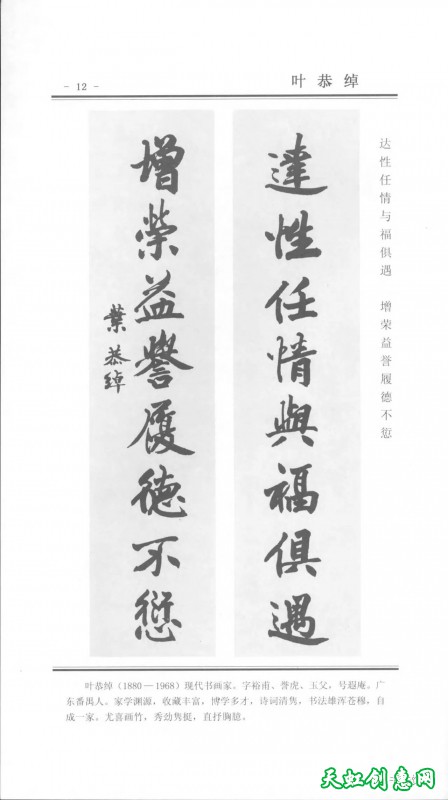 - 12 -
叶恭绰
達性任情與福俱遇
增榮益譽履德不愆
葉恭綽
达性任情与福俱遇 增荣益誉履德不愆
叶恭绰(1880—1968)现代书画家。字裕甫、誉虎、玉父,号遐庵。广
东番禺人。家学渊源,收藏丰富,博学多才,诗词清隽,书法雄浑苍穆,自
成一家。尤喜画竹,秀劲隽挺,直抒胸臆。
天虹创意网